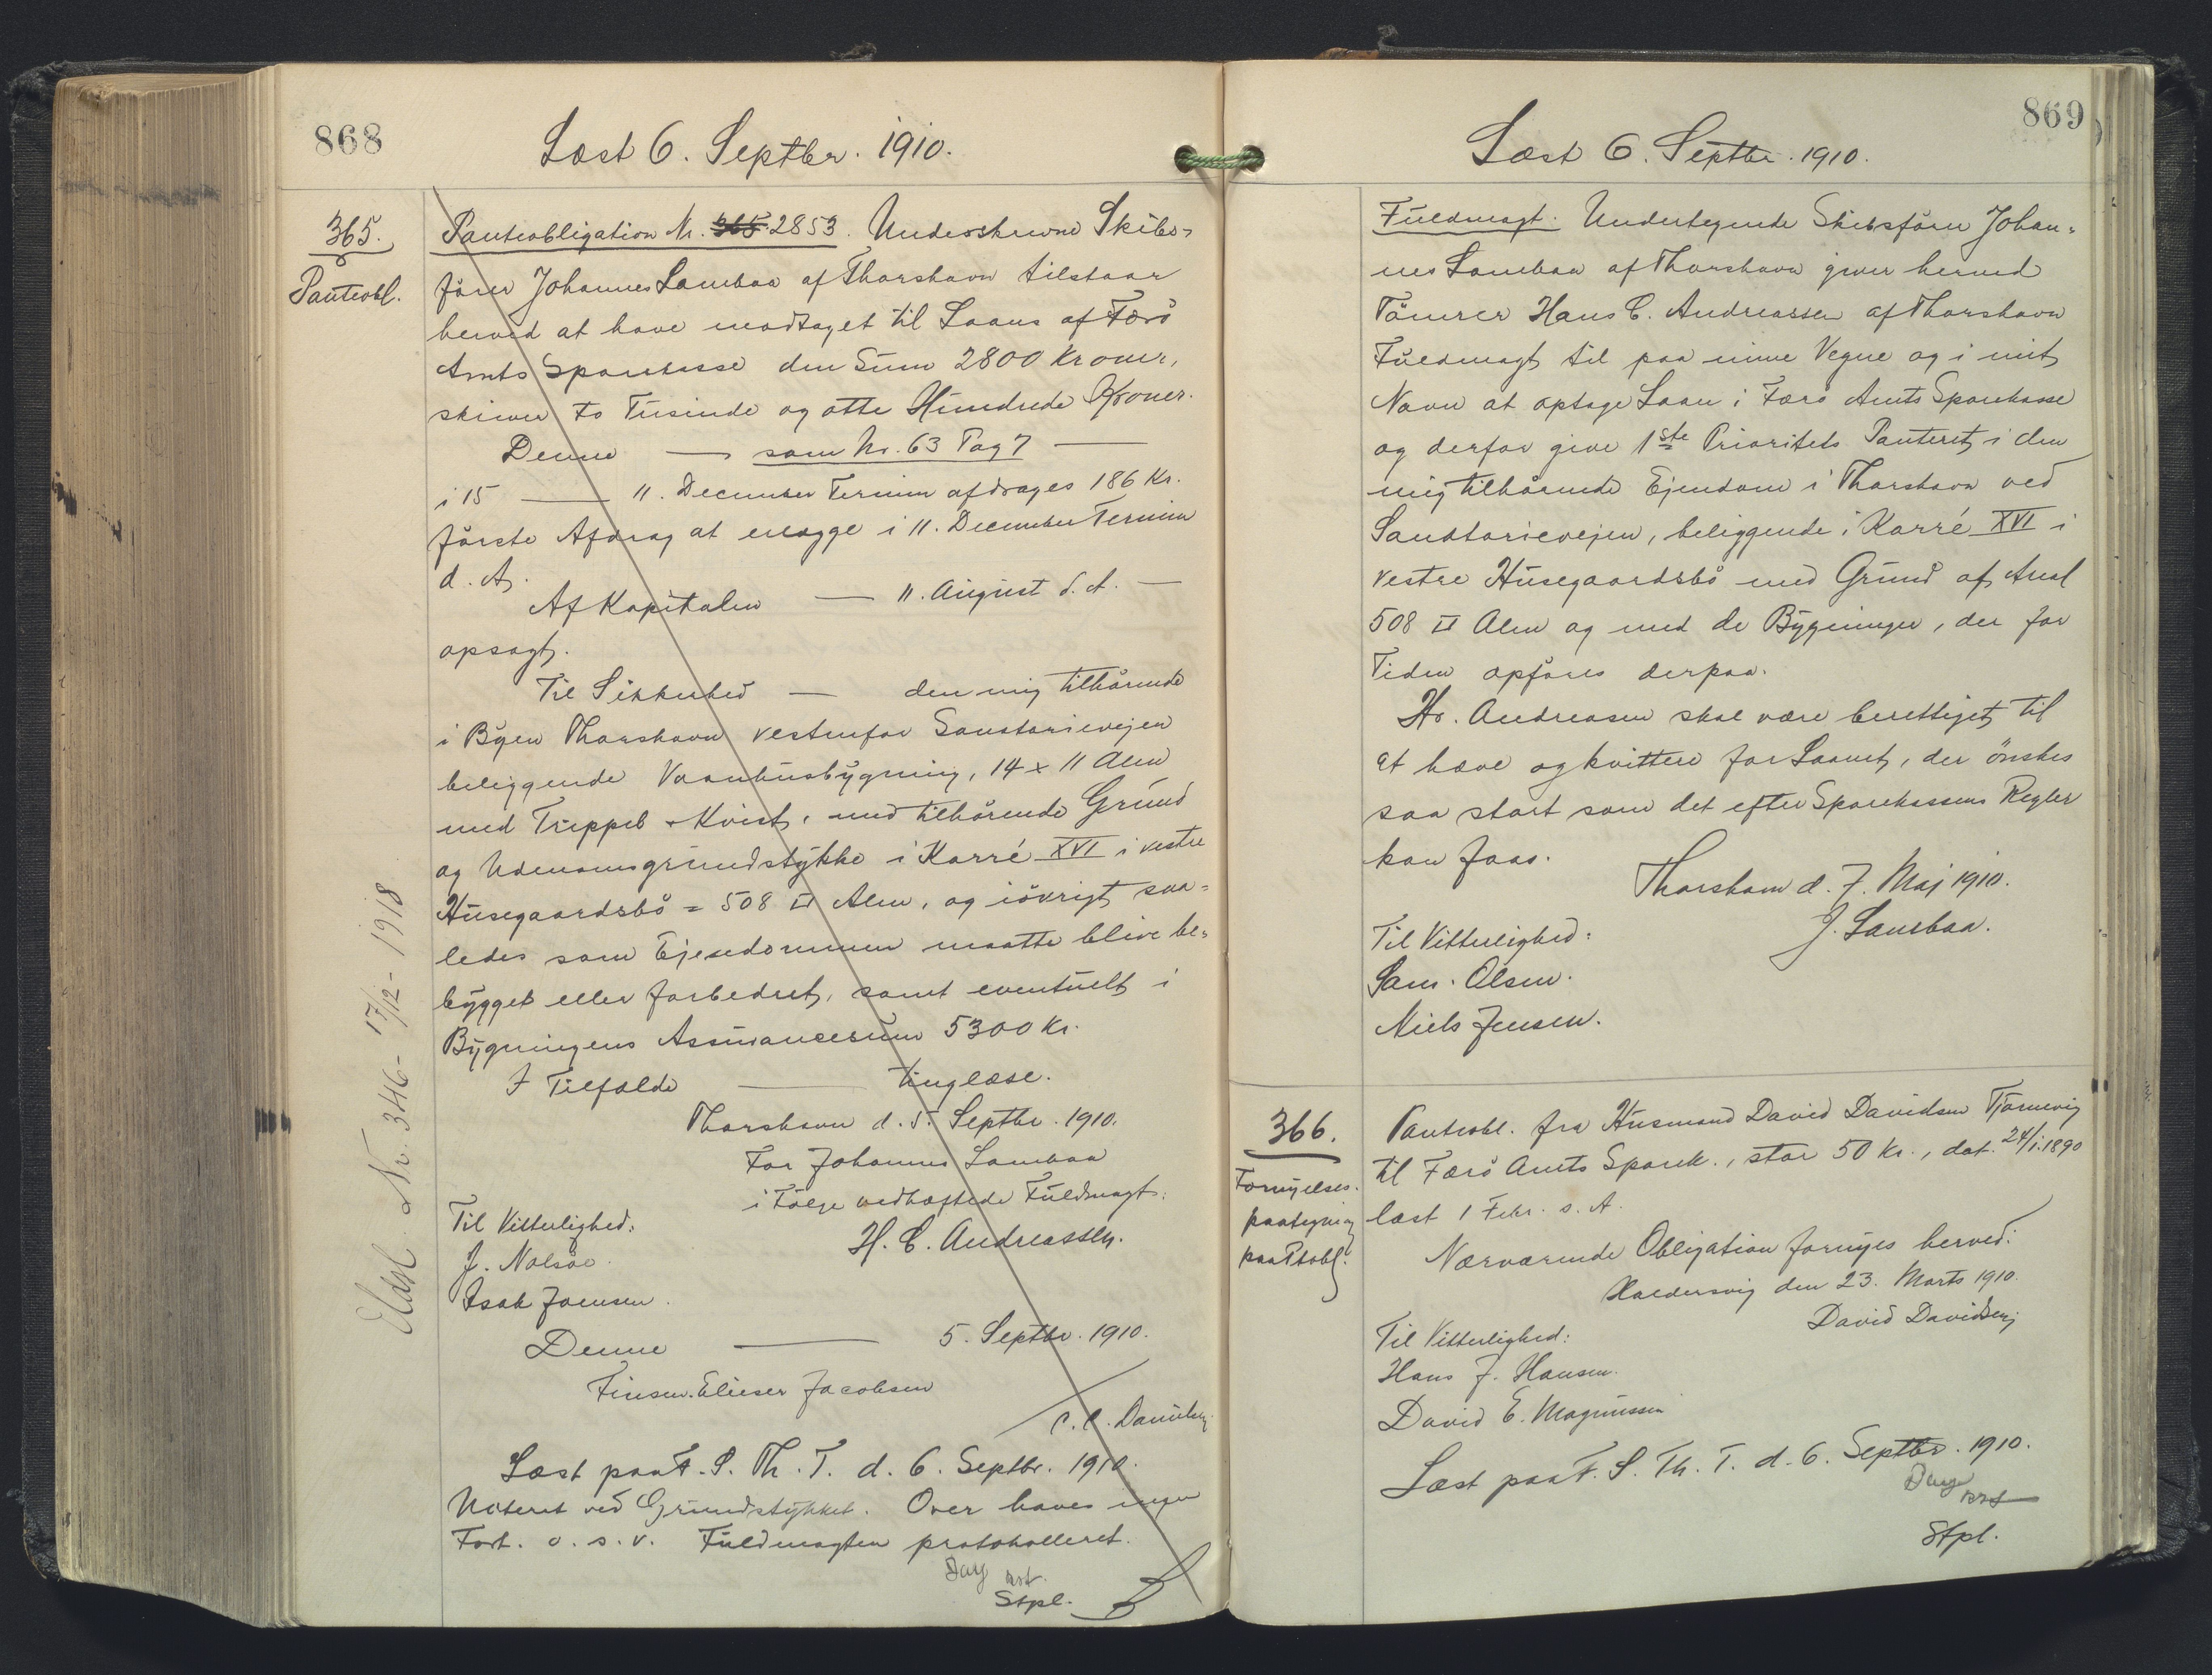 868
Læst 6. Septbr. 1910.
365.
Panteobl.
Panteobligation Nr. 365 2853. Underskrevne Skibs-
fører Johannes Lambaa af Thorshavn tilstaar
herved at have modtaget til Laans af Færø
Amts Sparekasse den Sum 2800 Kroner,
skriver To Tusinde og otte Hundrede Kroner.
Denne — som Nr. 63 Pag 7 —
i 15 — 11. December Termin afdrages 186 Kr.
første Afdrag at erlægge i 11. December Termin
d. A.
Af Kapitalen — 11. August d. A. —
opsagt.
Til Sikkerhed — den mig tilhørende
i Byen Thorshavn vestenfor Sanatorievejen
beliggende Vaanhusbygning, 14 x 11 Alen
med Trappeb + Kvist, med tilhørende Grund
og Udenomsgrundstykke i Karré XVI i vestre
Husegaardsbø = 508 □ Alen, og iøvrigt saa=
ledes som Ejendommen maatte blive be-
bygget eller forbedret, samt eventuelt i
Bygningens Assurancesum 5300 Kr.
I Tilfælde — tinglæse.
Thorshavn d. 5. Septbr. 1910.
For Johannes Lambaa
i Følge vedhæftede Fuldmagt:
H. C. Andreassen.
Til Vitterlighed:
J. Nolsöe.
Isak Joensen.
Denne — 5. Septbr. 1910.
Finsen. Elieser Jacobsen
/ C. C. Danielsen
Læst paa F. S. Th. T. d. 6. Septbr. 1910.
Noteret ved Grundstykket. Over haves ingen
Fort. o. s. v. Fuldmagten protokolleret.
Stpl.
Udsl. Nr. 346 - 17/12 - 1918
869
Læst 6. Septbr. 1910.
Fuldmagt. Undertegnede Skibsfører Johan=
nes Lambaa af Thorshavn giver herved
Tømrer Hans C. Andreassen af Thorshavn
Fuldmagt til paa mine Vegne og i mit
Navn at optage Laan i Færø Amts Sparekasse
og derfor give 1ste Prioritets Panteret i den
mig tilhørende Ejendom i Thorshavn ved
Sanatorievejen, beliggende i Karré XVI i
vestre Husegaardsbø med Grund af Areal
508 □ Alen og med de Bygninger, der for
Tiden opføres derpaa.
Hr. Andreasen skal være berettiget til
at hæve og kvittere for Laanet, der ønskes
saa stort som det efter Sparekassens Regler
kan faas.
Thorshavn d. 7. Maj 1910.
J. Lambaa.
Til Vitterlighed:
Sam. Olsen.
Niels Jensen.
366.
Fornyelses-
paategning
paa Ptobl.
Panteobl. fra Husmand David Davidsen Tjørnevig
til Færø Amts Sparek., stor 50 Kr., dat. 24/1.1890
læst 1 Febr. s. A.
Nærværende Obligation fornyes herved.
Haldersvig den 23. Marts 1910.
David Davidsen
Til Vitterlighed:
Hans J. Hansen.
David E. Magnussen
Læst paa F. S. Th. T. d. 6. Septbr. 1910.
Stpl.